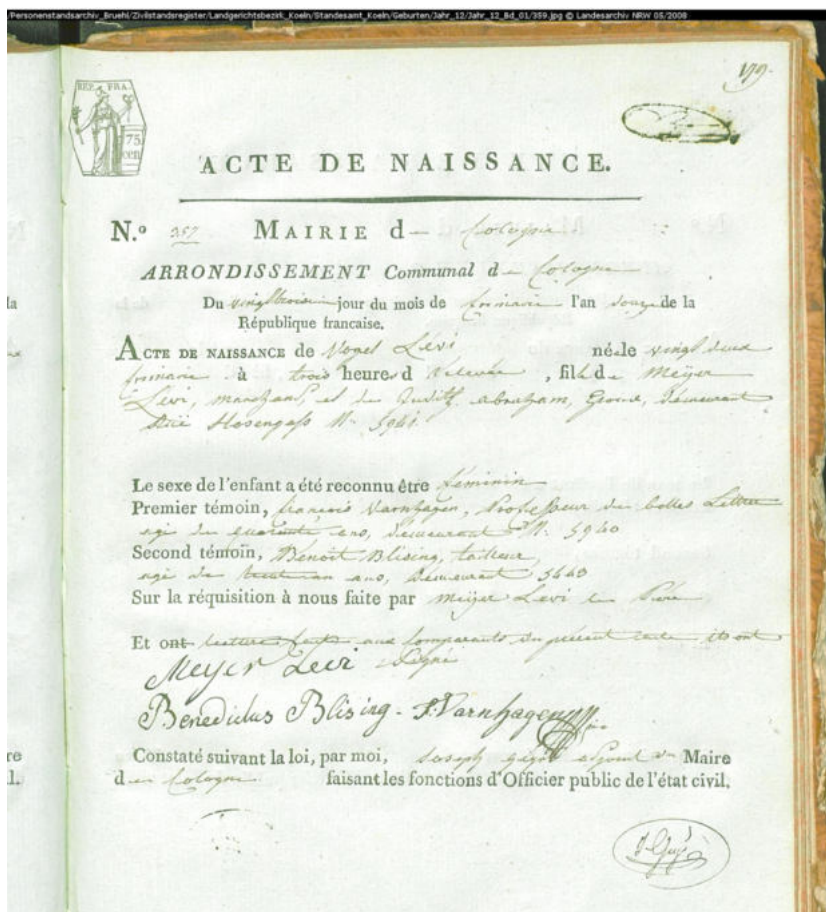 /Personenstandsarchiv_Bruehl/Zivilstandsregister/Landgerichtsbezirk_Koeln/Standesamt_Koeln/Geburten/Jahr_12/Jahr_12_Bd_01/359.jpg © Landesarchiv NRW 05/2008
179.
REP. FRA.
75
CEN.
ACTE DE NAISSANCE.
N.º 357 MAIRIE d Cologne
ARRONDISSEMENT Communal d Cologne
Du vingttrois jour du mois de frimaire l'an douze de la
République francaise.
ACTE DE NAISSANCE de Vogel Levi née le vingt deux
frimaire à trois heures d relevée, fille de Meÿer
Levi, marchand, et de Judith Abraham, demeurant
Hosengass N. 5941.
Le sexe de l'enfant a été reconnu être féminin
Premier témoin, françois Varnhagen, Professeur de belles Lettres
agé de quarante ans, demeurant N. 5940
Second témoin, Benoit Blising, tailleur,
agé de ans, demeurant 5440
Sur la réquisition à nous faite par Meÿer Levi le Pere
Et ont lecture faite aux Comparants du présent acte ils ont
signé
Meyer Levi
Benedictus Blising - F. Varnhagen
Constaté suivant la loi, par moi, Joseph adjoint Maire
d Cologne faisant les fonctions d'Officier public de l'état civil.
la
re
l.